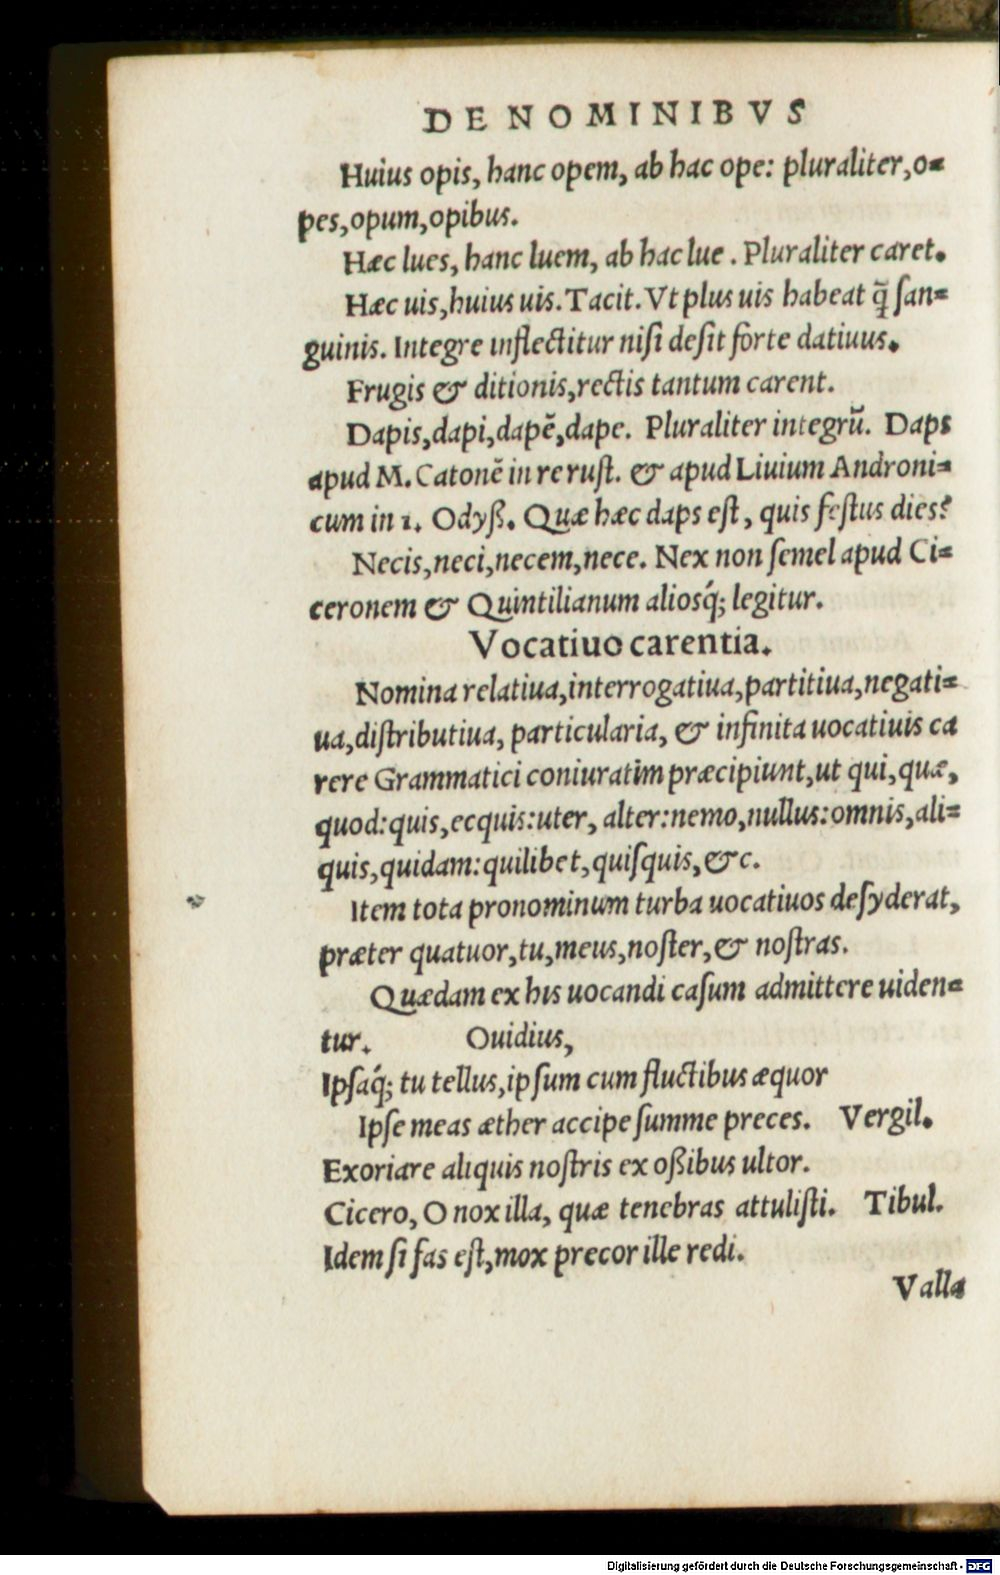 DE NOMINIBVS
Huius opis, hanc opem, ab hac ope: pluraliter, o=
pes, opum, opibus.
Hæc lues, hanc luem, ab hac lue . Pluraliter caret.
Hæc uis, huius uis. Tacit. Vt plus uis habeat q̃ ſan=
guinis. Integre inflectitur niſi deſit forte datiuus.
Frugis & ditionis, rectis tantum carent.
Dapis, dapi, dapẽ, dape. Pluraliter integrũ. Daps
apud M. Catonẽ in re ruſt. & apud Liuium Androni=
cum in 1. Odyß. Quæ hæc daps eſt, quis feſtus dies?
Necis, neci, necem, nece. Nex non ſemel apud Ci=
ceronem & Quintilianum aliosq́; legitur.
Vocatiuo carentia.
Nomina relatiua, interrogatiua, partitiua, negati=
ua, diſtributiua, particularia, & infinita uocatiuis ca
rere Grammatici coniuratim præcipiunt, ut qui, quæ,
quod: quis, ecquis: uter, alter: nemo, nullus: omnis, ali=
quis, quidam: quilibet, quiſquis, &c.
Item tota pronominum turba uocatiuos deſyderat,
præter quatuor, tu, meus, noſter, & noſtras.
Quædam ex his uocandi caſum admittere uiden=
tur. Ouidius,
Ipſaq́; tu tellus, ipſum cum fluctibus æquor
Ipſe meas æther accipe ſumme preces. Vergil.
Exoriare aliquis noſtris ex oßibus ultor.
Cicero, O nox illa, quæ tenebras attuliſti. Tibul.
Idem ſi fas eſt, mox precor ille redi.
Valla
Digitalisierung gefördert durch die Deutsche Forschungsgemeinschaft - DFG